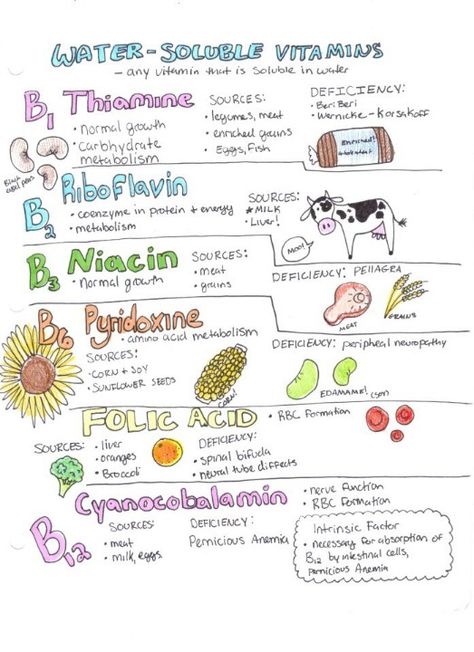 WATER-SOLUBLE VITAMINS
- any vitamin that is soluble in water
B1 Thiamine
• normal growth
• Carbohydrate
metabolism
SOURCES:
• legumes, meat
• enriched grains
• Eggs, Fish
DEFICIENCY:
• Beri Beri
• Wernicke-Korsakoff
Enriched!
whole wheat
Black
eyed peas
B2 Riboflavin
• coenzyme in protein + energy
• metabolism
SOURCES:
★ MILK
• Liver!
MOO!
B3 Niacin
• normal growth
SOURCES:
• meat
• grains
DEFICIENCY: Pellagra
MEAT
GRAINS
B6 Pyridoxine
• amino acid metabolism
SOURCES:
• CORN & SOY
• SUNFLOWER SEEDS
CORN!
DEFICIENCY: peripheral neuropathy
EDAMAME!
(soy)
FOLIC ACID
• RBC Formation
SOURCES:
• liver
• oranges
• Broccoli
DEFICIENCY:
• spinal bifida
• neural tube diffects
B12 Cyanocobalamin
• nerve function
• RBC Formation
SOURCES:
• meat
• milk, eggs
DEFICIENCY:
Pernicious Anemia
Intrinsic Factor
• necessary for absorption of
B12 by intestinal cells,
pernicious Anemia